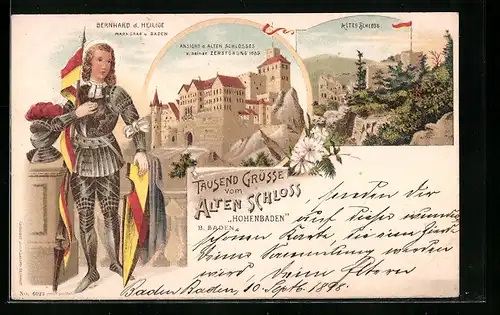 BERNHARD d. HEILIGE
MARKGRAF v. BADEN
ANSICHT d. ALTEN SCHLOSSES
v. seiner ZERSTÖRUNG 1689
ALTES SCHLOSS
TAUSEND GRÜSSE
vom
ALTEN SCHLOSS
„HOHENBADEN"
B. BADEN.
senden dir
auf diese
schönen Karte,
Deine Sammlung werden
wird, Deine Eltern
Baden Baden, 10. Septb. 1898.